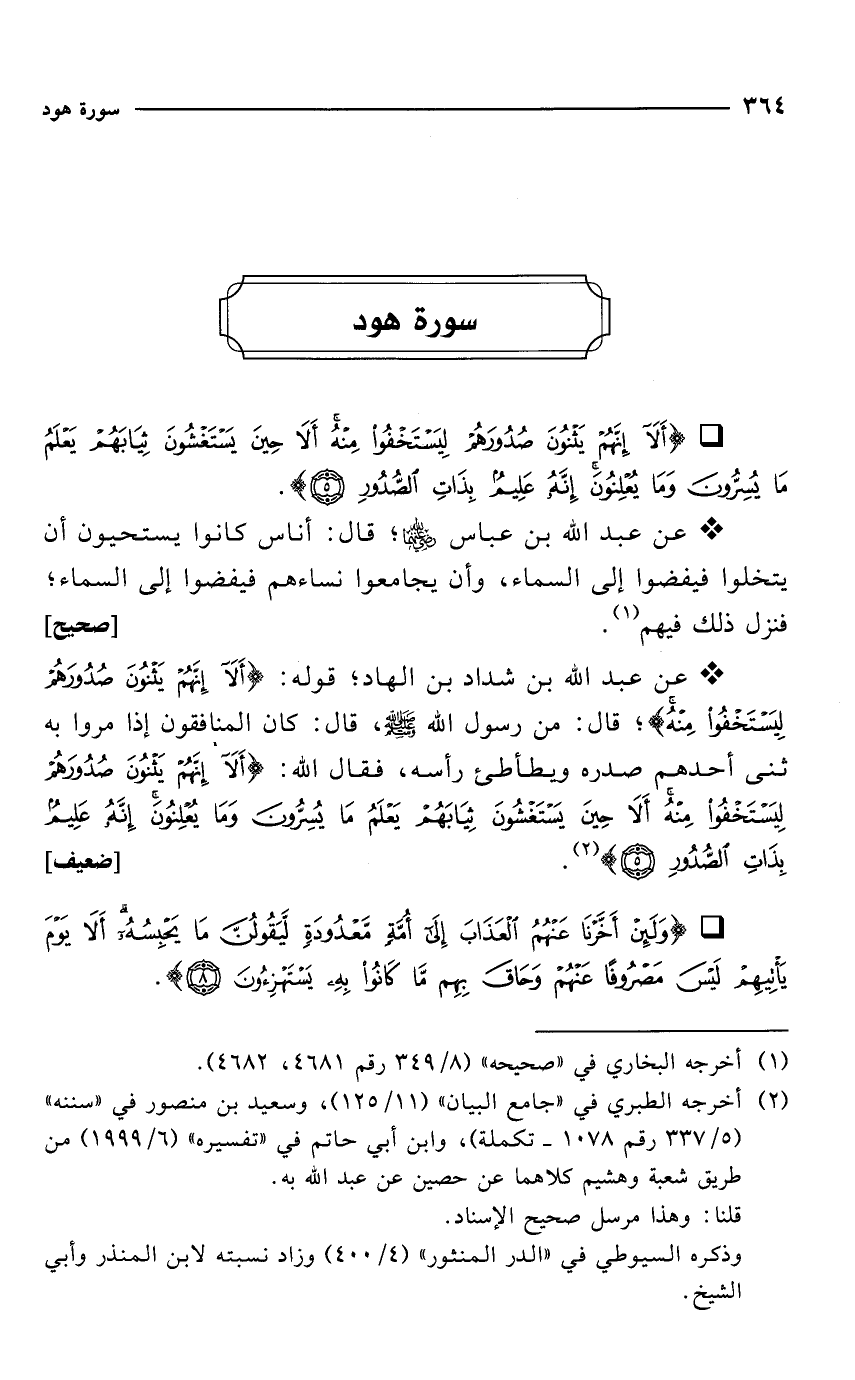 ٣٦٤ سورة هود
سورة هود
❏ ﴿أَلَآ إِنَّهُمْ يَثْنُونَ صُدُورَهُمْ لِيَسْتَخْفُوا۟ مِنْهُ ۚ أَلَا حِينَ يَسْتَغْشُونَ ثِيَابَهُمْ يَعْلَمُ
مَا يُسِرُّونَ وَمَا يُعْلِنُونَ ۚ إِنَّهُۥ عَلِيمٌۢ بِذَاتِ ٱلصُّدُورِ ۝٥﴾.
❖ عن عبد الله بن عباس رضي الله عنهما؛ قال: أناس كانوا يستحيون أن
يتخلوا فيفضوا إلى السماء، وأن يجامعوا نساءهم فيفضوا إلى السماء؛
فنزل ذلك فيهم(١). [صحيح]
❖ عن عبد الله بن شداد بن الهاد؛ قوله: ﴿أَلَآ إِنَّهُمْ يَثْنُونَ صُدُورَهُمْ
لِيَسْتَخْفُوا۟ مِنْهُ ۚ﴾؛ قال: من رسول الله ﷺ، قال: كان المنافقون إذا مروا به
ثنى أحدهم صدره ويطأطئ رأسه، فقال الله: ﴿أَلَآ إِنَّهُمْ يَثْنُونَ صُدُورَهُمْ
لِيَسْتَخْفُوا۟ مِنْهُ ۚ أَلَا حِينَ يَسْتَغْشُونَ ثِيَابَهُمْ يَعْلَمُ مَا يُسِرُّونَ وَمَا يُعْلِنُونَ ۚ إِنَّهُۥ عَلِيمٌۢ
بِذَاتِ ٱلصُّدُورِ ۝٥﴾(٢). [ضعيف]
❏ ﴿وَلَئِنْ أَخَّرْنَا عَنْهُمُ ٱلْعَذَابَ إِلَىٰٓ أُمَّةٍ مَّعْدُودَةٍ لَّيَقُولُنَّ مَا يَحْبِسُهُۥٓ ۗ أَلَا يَوْمَ
يَأْتِيهِمْ لَيْسَ مَصْرُوفًا عَنْهُمْ وَحَاقَ بِهِم مَّا كَانُوا۟ بِهِۦ يَسْتَهْزِءُونَ ۝٨﴾.
(١) أخرجه البخاري في «صحيحه» (٨/ ٣٤٩ رقم ٤٦٨١، ٤٦٨٢).
(٢) أخرجه الطبري في «جامع البيان» (١١/ ١٢٥)، وسعيد بن منصور في «سننه»
(٥/ ٣٣٧ رقم ١٠٧٨ ـ تكملة)، وابن أبي حاتم في «تفسيره» (٦/ ١٩٩٩) من
طريق شعبة وهشيم كلاهما عن حصين عن عبد الله به.
قلنا: وهذا مرسل صحيح الإسناد.
وذكره السيوطي في «الدر المنثور» (٤/ ٤٠٠) وزاد نسبته لابن المنذر وأبي
الشيخ.